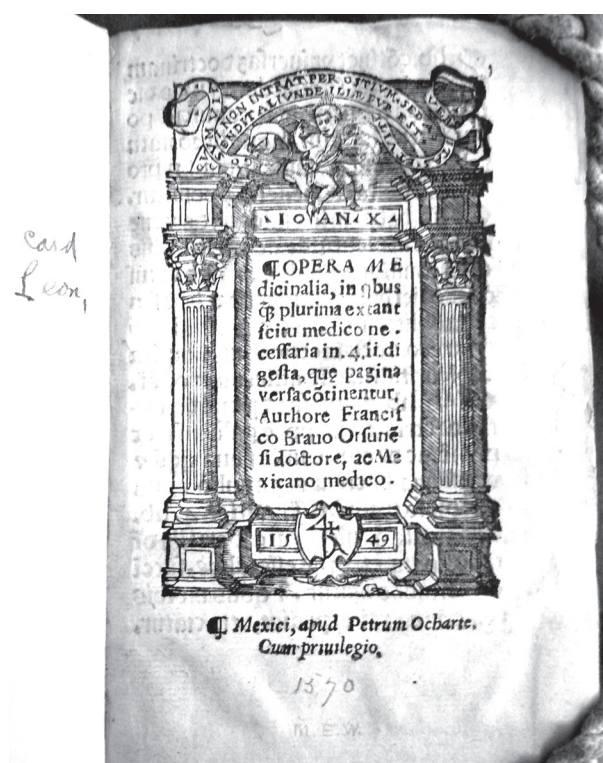 NON INTRAT PER OSTIVM, SED A
ENDIT ALIVNDE, ILLE FVR EST
IO AN X
¶OPERA ME
dicinalia, in qbus
ꝙ plurima extant
ſcitu medico ne.
ceſſaria in.4.ii.di
geſta, quę pagina
verſa cõtinentur,
Authore Franciſ
co Brauo Orſunẽ
ſi doctore, ac Me
xicano medico.
15 49
¶ Mexici, apud Petrum Ocharte.
Cum priuilegio,
1570
M. E. W.
card
Leon,